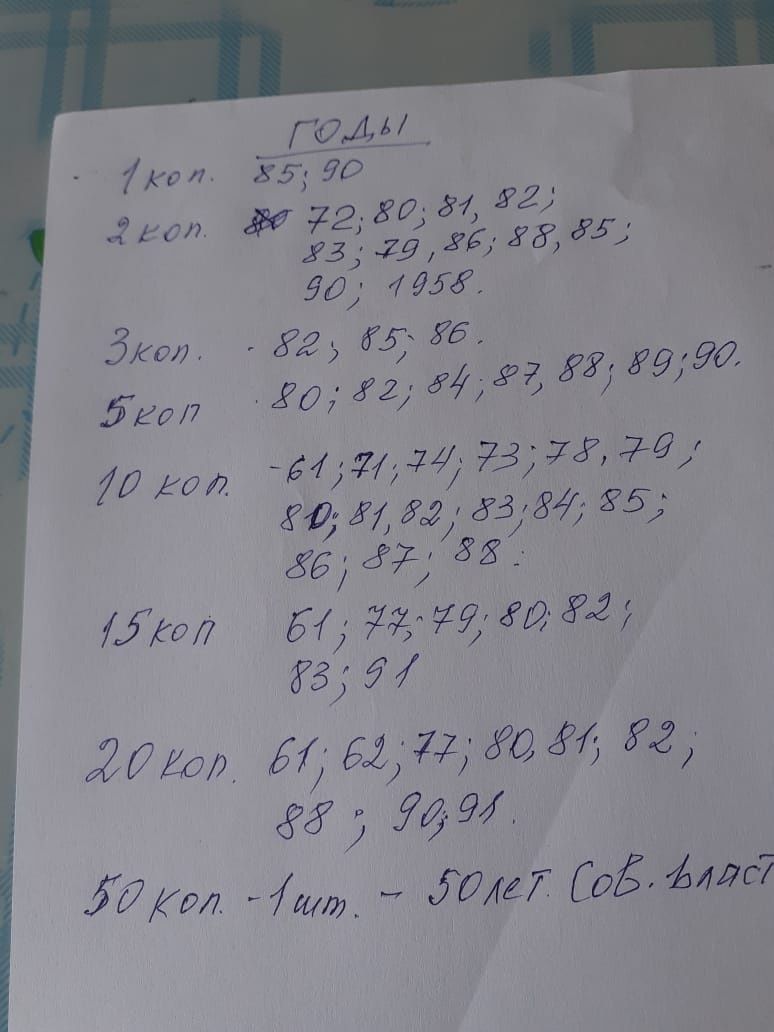 ГОДЫ
1 коп. 85; 90
2 коп. 72; 80; 81, 82;
83; 79, 86; 88, 85;
90; 1958.
3 коп. 82; 85; 86.
5 коп 80; 82; 84; 87, 88; 89; 90.
10 коп. - 61; 71; 74; 73; 78, 79;
80; 81, 82; 83; 84; 85;
86; 87; 88.
15 коп 61; 77; 79; 80; 82;
83; 91
20 коп. 61; 62; 77; 80, 81; 82;
88; 90; 91.
50 коп. - 1 шт. - 50 лет. Сов. Власт